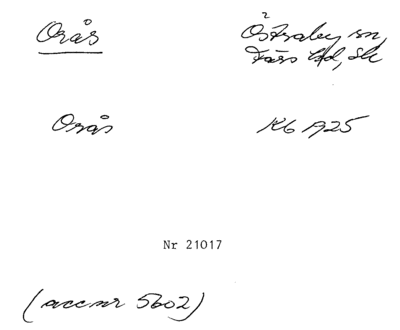 Orås
Östraby sn,
Färs hd, Sk
Orås
Kb 1925
Nr 21017
(acc nr 5602)